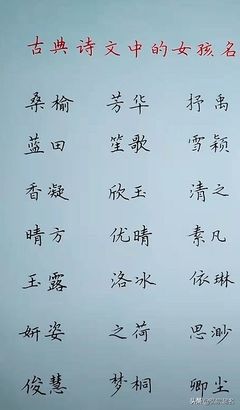 古典诗文中的女孩名
桑榆 芳华 抒禹
蓝田 笙歌 雪颖
香凝 欣玉 清之
晴方 优晴 素凡
玉露 洛冰 依琳
妍姿 之荷 思渺
俊慧 梦桐 卿尘